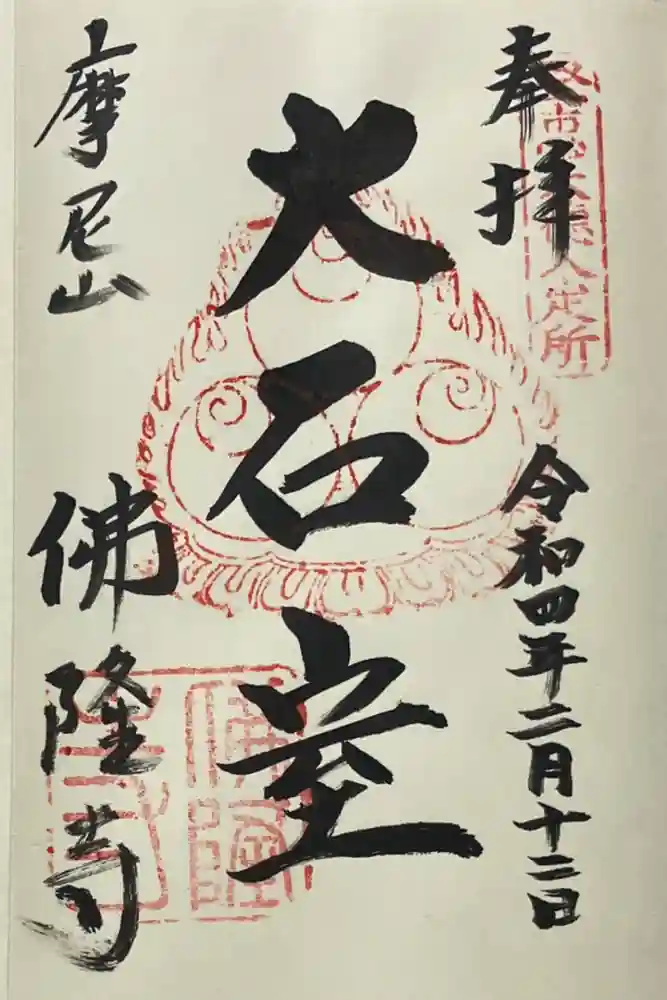 奉拝
入定所
令和四年二月十二日
大石室
摩尼山
佛隆寺
佛隆